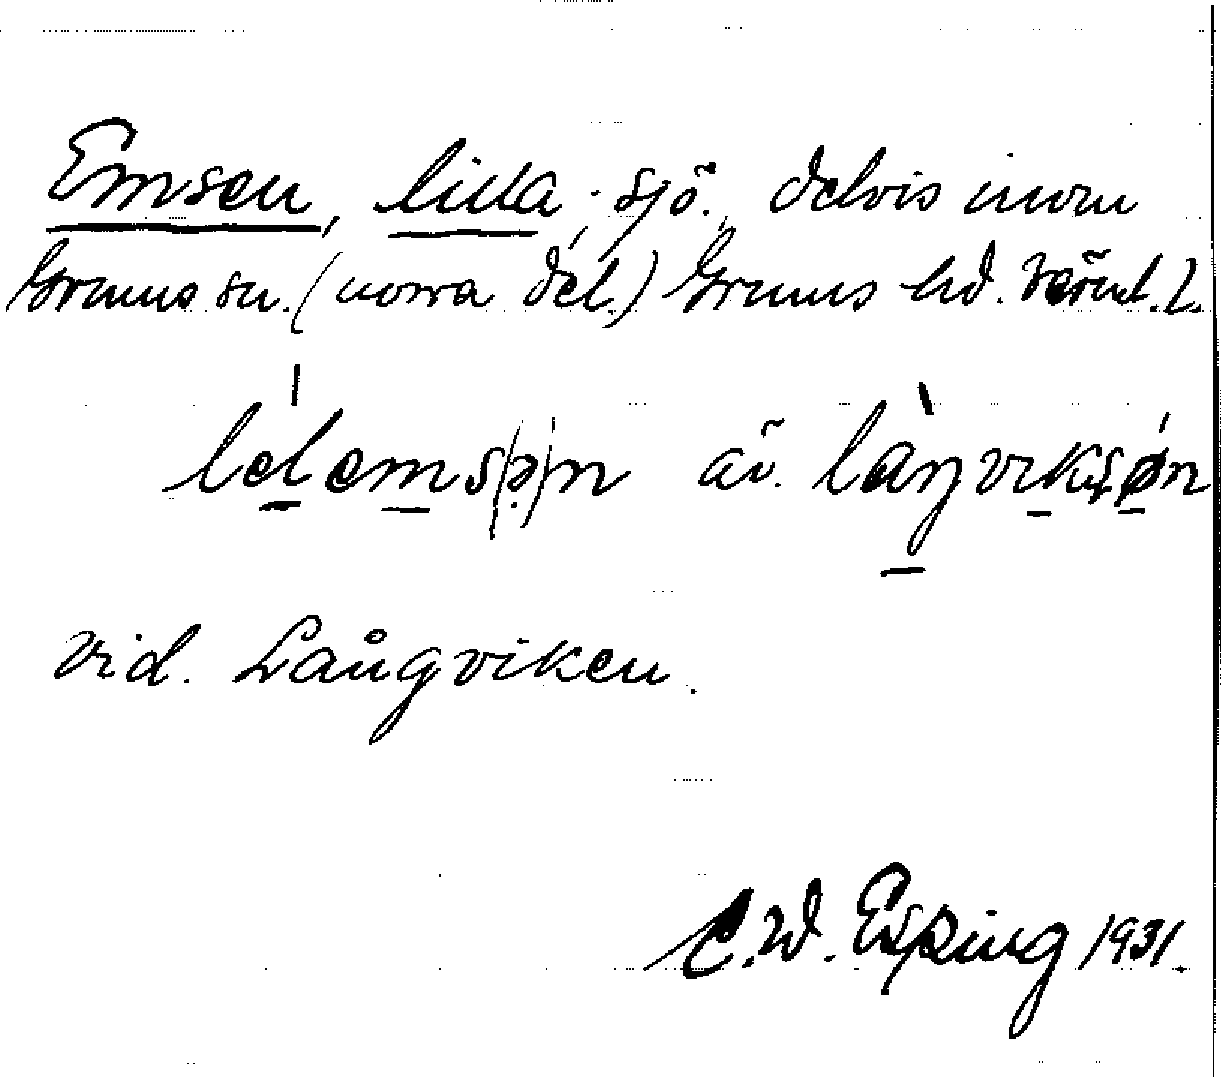 Emsen, lilla, sjö, delvis inom
Grums sn. (norra del.) Grums hd. Värml. L.
av.
vid. Långviken.
C.W. Esping 1931.